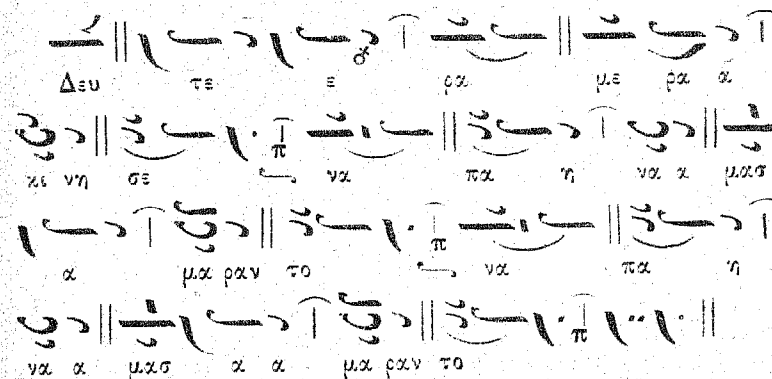 Δευ τε ε ρα με ρα α
κι νη σε π να πα η να α μασ
α μα ραν το π να πα η
να α μασ α α μα ραν το π